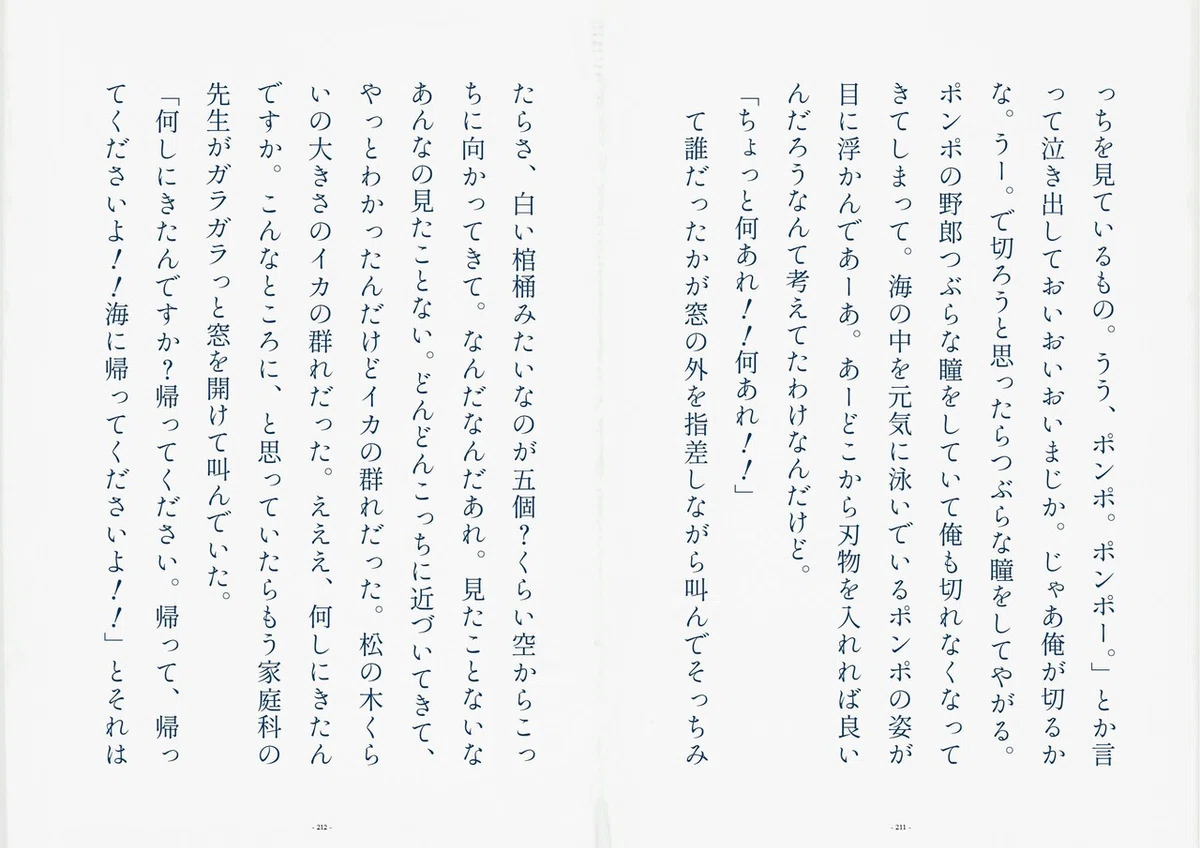 っちを見ているもの。うう、ポンポ。ポンポー。」とか言
って泣き出しておいおいおいおいまじか。じゃあ俺が切るか
な。うー。で切ろうと思ったらつぶらな瞳をしてやがる。
ポンポの野郎つぶらな瞳をしていて俺も切れなくなって
きてしまって。海の中を元気に泳いでいるポンポの姿が
目に浮かんであーあ。あーどこから刃物を入れれば良い
んだろうなんて考えてたわけなんだけど。
「ちょっと何あれ！！何あれ！！」
て誰だったかが窓の外を指差しながら叫んでそっちみ
- 211 -
たらさ、白い棺桶みたいなのが五個？くらい空からこっ
ちに向かってきて。なんだなんだあれ。見たことないな
あんなの見たことない。どんどんこっちに近づいてきて、
やっとわかったんだけどイカの群れだった。松の木くら
いの大きさのイカの群れだった。えええ、何しにきたん
ですか。こんなところに、と思っていたらもう家庭科の
先生がガラガラっと窓を開けて叫んでいた。
「何しにきたんですか？帰ってください。帰って、帰っ
てくださいよ！！海に帰ってくださいよ！！」とそれは
- 212 -